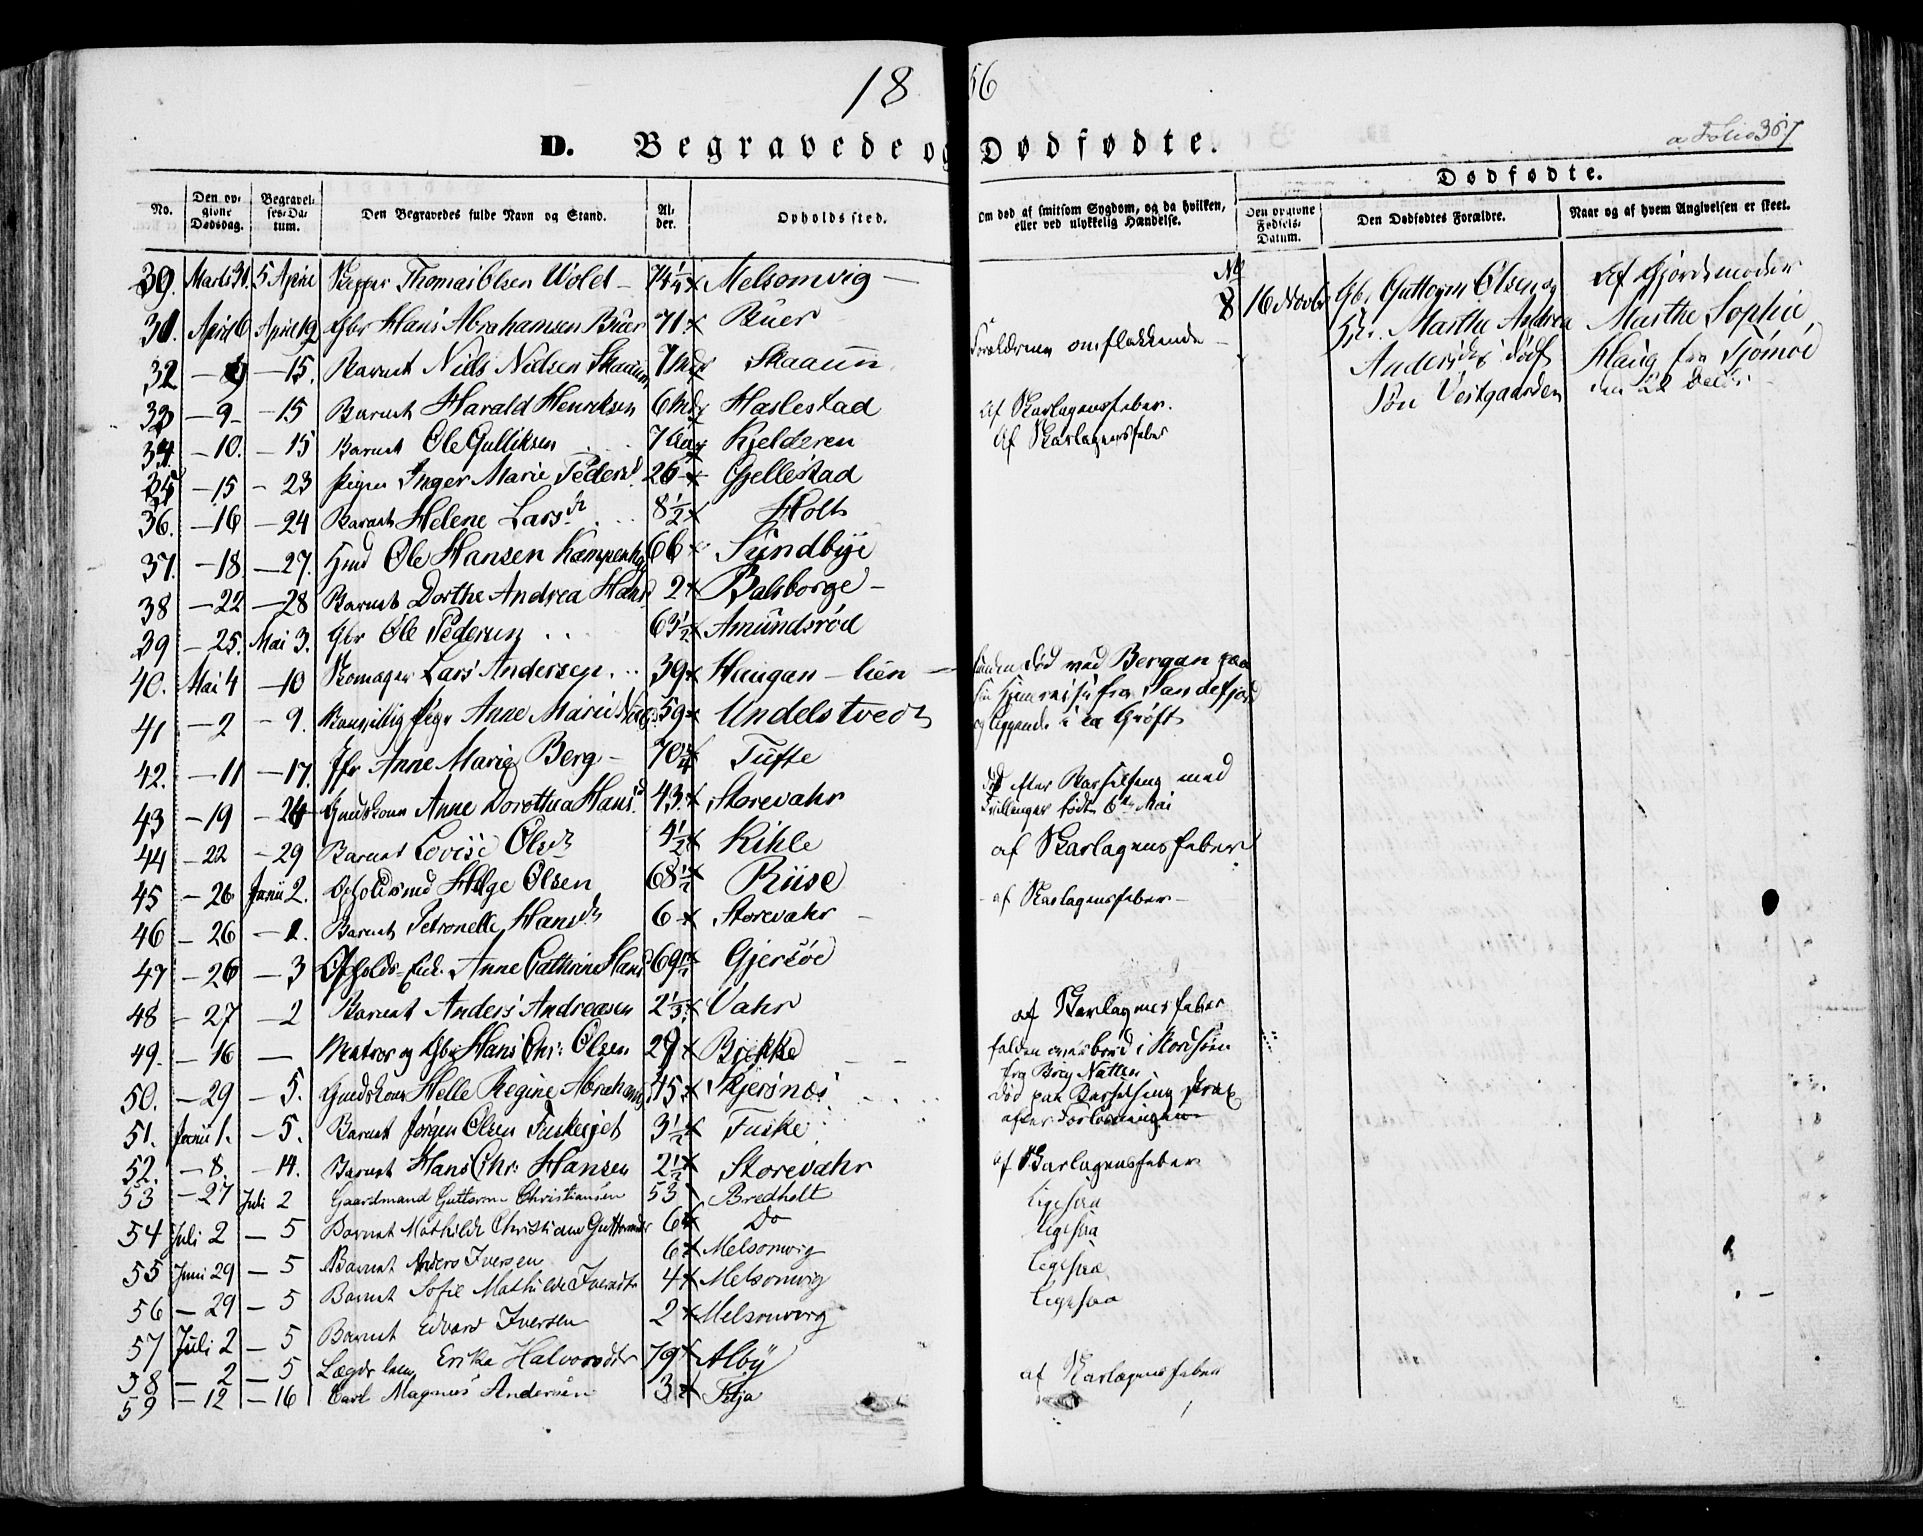 1856
D. Begravede og Dødfødte.
a Folio 367
Dødfødte.
No. Den opgivne Dødsdag. Begravelses-Datum. Den Begravedes fulde Navn og Stand. Alder. Opholdssted. Om død af smitsom Sygdom, og da hvilken, eller ved ulykkelig Hændelse. Den opgivne Fødsels-Datum. Den Dødfødtes Forældre. Naar og af hvem Angivelsen er skeet.
30. Marts 31. 5 April Thomas Olsen Wold 74 1/4 x Melsomvig
31. April 6 April 12 Gbr Hans Abrahamsen Büer 71 x Büer
32 — 9 — 15. Barnet Niels Nielsen Skaaum 7 Md x Skaaun Forældrene omflakkende
33 — 9 — 15 Barnet Harald Henriksen 6 Mdr Haslestad Af Skarlagensfeber.
34 — 10. — 15 Barnet Ole Gulliksen 7 Kjelderen Af Skarlagensfeber
35 — 15 — 23 Pigen Inger Marie Pedersd. 26 x Gjellestad
36. — 16 — 24 Barnet Helene Larsdr 8 1/2 x Holt
37. — 18. — 27. Hmd Ole Hansen 66 x Sundbye
38 — 22 — 28 Barnet Dorthe Andrea Hansd 2 x Balsborge
39 — 25. Mai 3. Gbr Ole Pedersen 63 1/2 x Amundsrød
40. Mai 4 — 10 Skomager Lars Andersen 39 x Haugan-lien funden død ved Bergan paa
sin Hjemreise fra Sandefjord
og liggende i en Grøft
41 — 2 — 9. Pige Anne Marie 59 x Undelstvedt
42. — 11 — 17. Jfr Anne Marie Berg 70 1/4 x Tufte
43 — 19 — 24 Gmdskone Anne Dorothea Hansd. 43 x Storevahr Død efter Barselseng med
Tvillinger født 6te Mai
44 — 22 — 29 Barnet Lovise Olsdr 4 1/2 x Kihle af Skarlagensfeber
45 — 26 Junii 2. Helge Olsen 68 1/2 x Riise
46 — 26 — 1. Barnet Petronelle Hansdr 6 x Storevahr af Skarlagensfeber
47 — 26 — 3 Opholds-Enk. Anne Cathrine Hansd 69 1/2 Gjersøe
48 — 27 — 2 Barnet Anders Andreasen 2 1/2 x Vahr af Skarlagensfeber
49. — 16 — Matros og Gbr Hans Chr: Olsen 29 x Bjekke falden overbord i Nordsøen
fra Brig
50. — 29 — 5. Gmdskone Helle Regine Abrahamsd 45 x Skjersnæs død paa Barselseng strax
efter Forløsningen
51. Junii 1. — 5. Barnet Jørgen Olsen 3 1/2 x Fuske
52. — 8. — 14. Barnet Hans Chr: Hansen 2 1/2 x Storevahr af Skarlagensfeber
53 — 27 Juli 2 Gaardmand Guttorm Christiansen 53 Bredholt ligesaa
54 Juli 2 — 5 Barnet Mathilde Christiane Guttormsdr 6 x Do ligesaa
55 Juni 29 — 5 Barnet Anders Iversen 6 x Melsomvig ligesaa
56 — 29 — 5 Barnet Sofie Mathilde Iversdtr 4 x Melsomvig ligesaa
57 Juli 2 — 5 Barnet Edvard Iversen 2 x Melsomvig
58 — 2 — 5 Lægdslem Erika Halvorsdtr 79 x Alby
59 — 12 — 16 Carl Magnus Andersen 3 x Selja af Skarlagensfeber
No
8 16 Novbr Gbr Guttorm Olsen og
Hst. Marthe Andrea
Andersdtr dødf.
Søn Vestgaarden
Af Gjordemoder
Marthe Sophie
Haug fra Tjømøe
den 22 Decbr